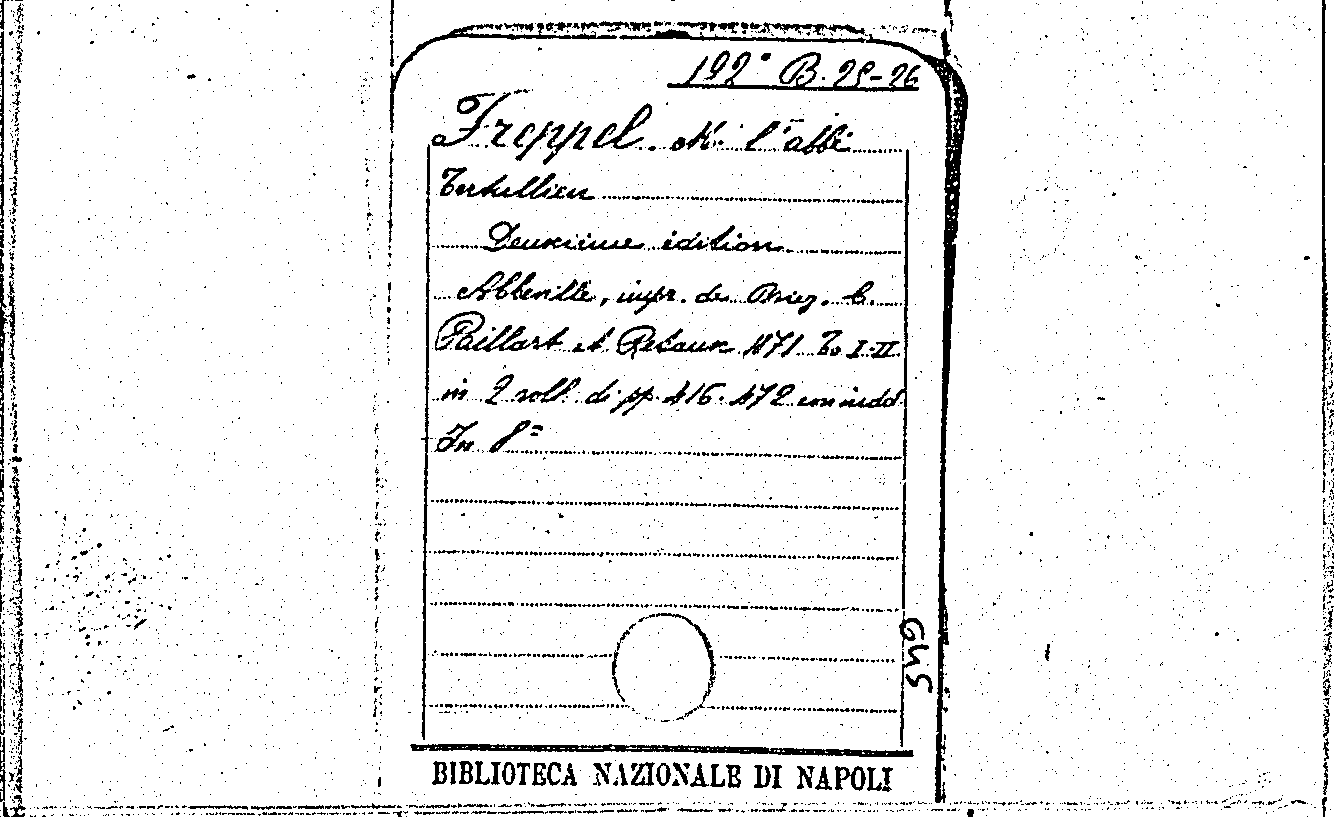 192° B. 25-26
Freppel. M. l'abbé
Tertullien
Deuxième édition
Abbeville, impr. de Briez, C.
Paillart et Retaux 1871 To I-II
in 2 voll. di pp. 416-472 con indd
In 8=
SHG
BIBLIOTECA NAZIONALE DI NAPOLI